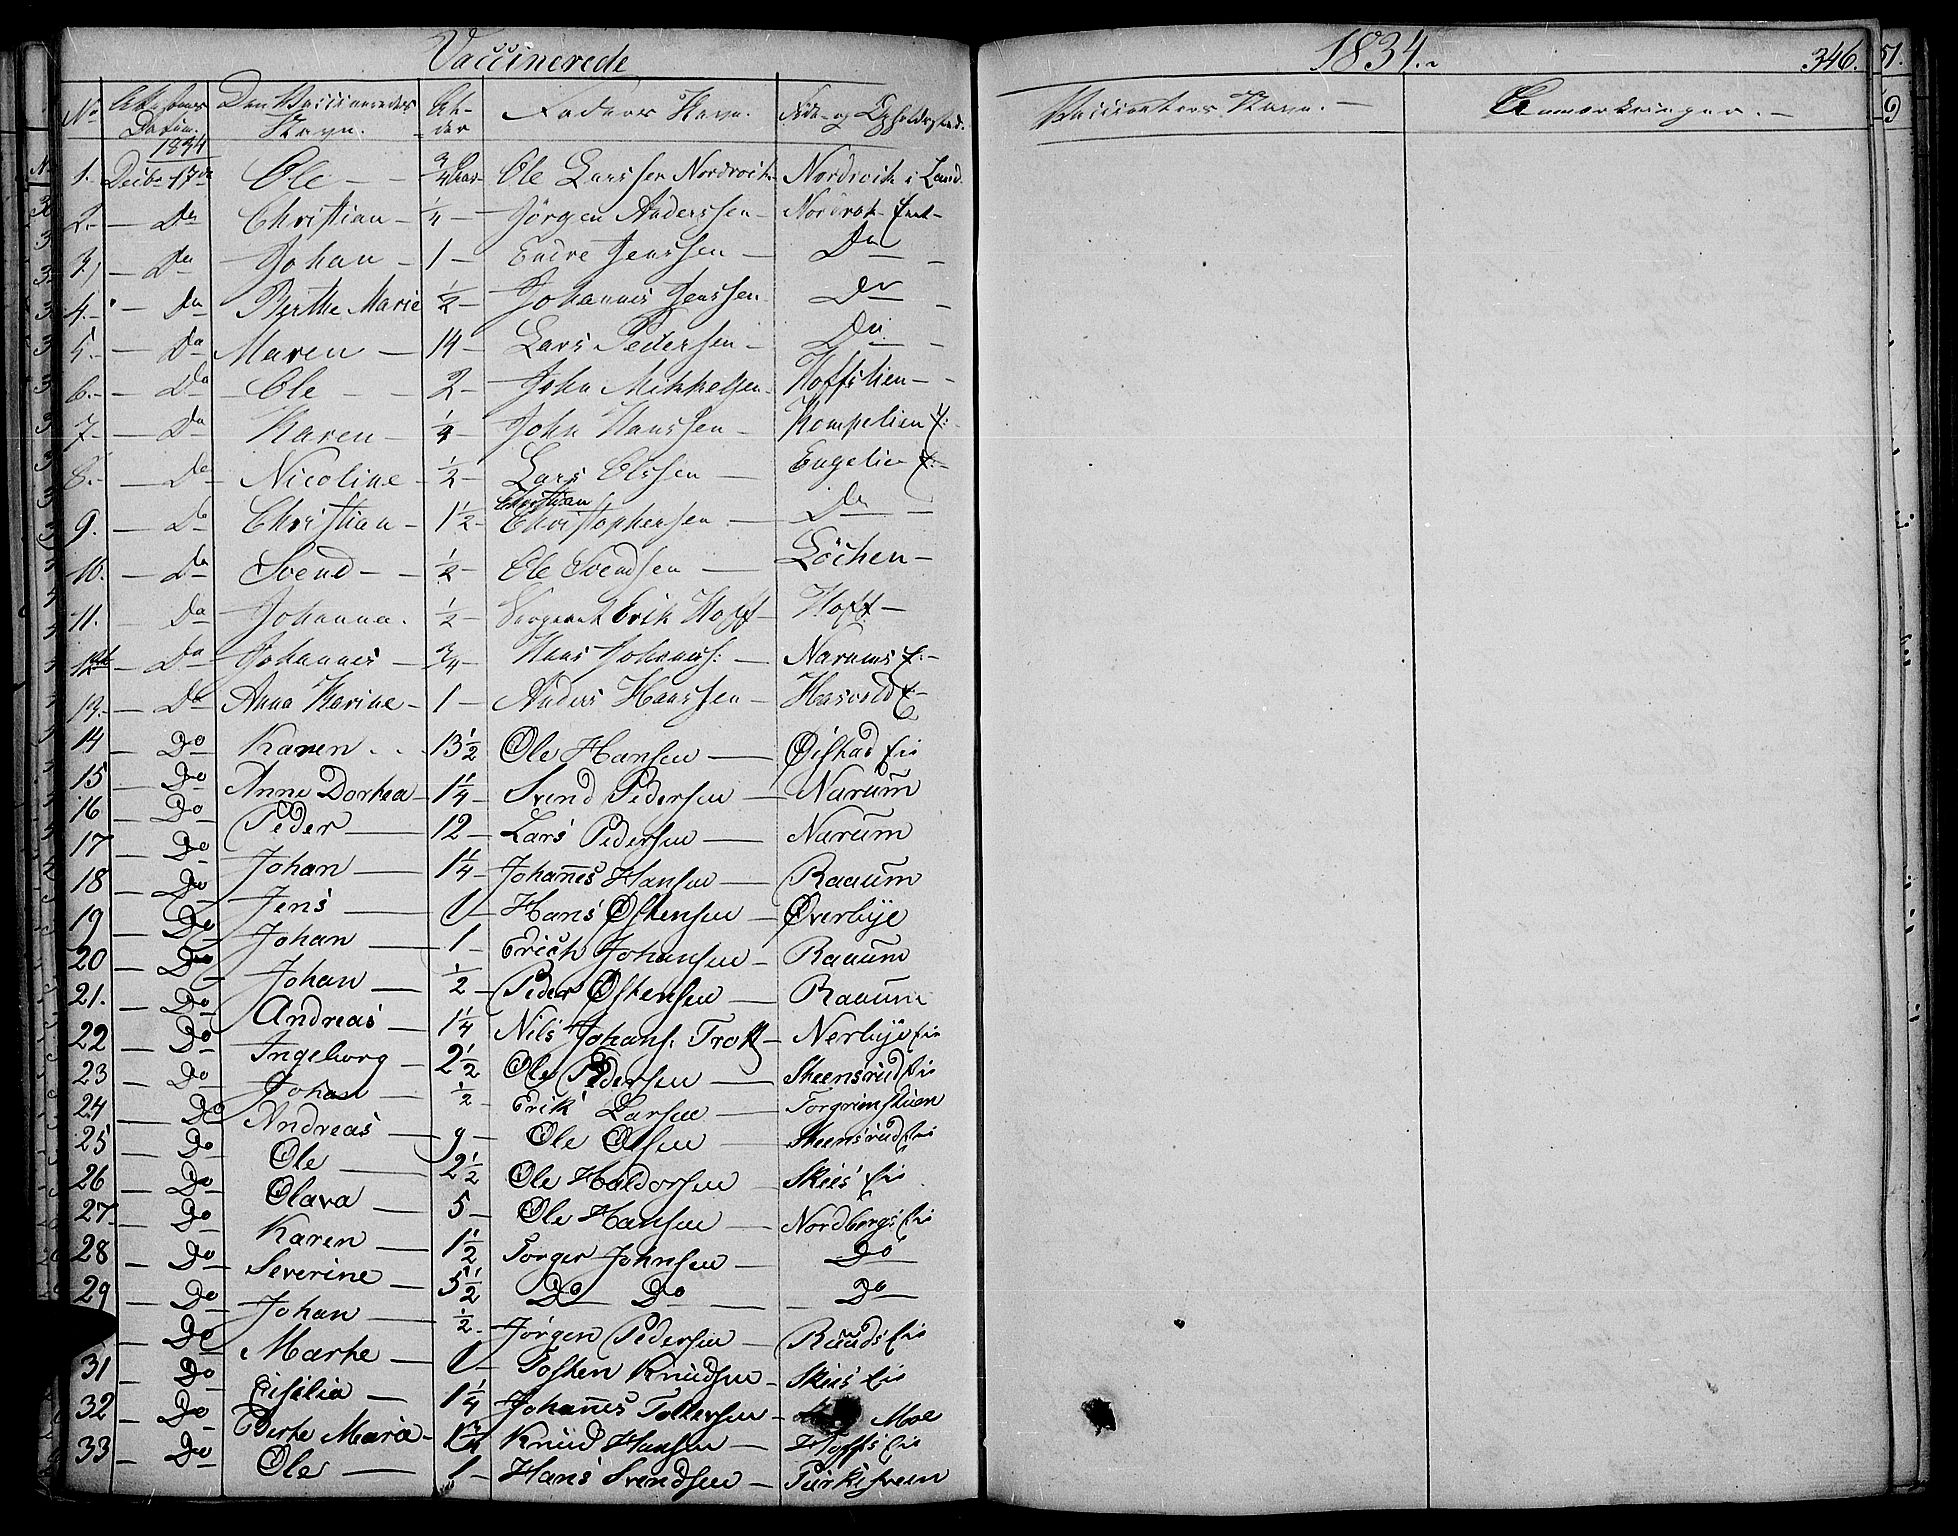 Vaccinerede
1834.
346.
No Attestens Datum. Den Vaccineredes Navn. Alder Faders Navn. Føde- og Opholdssted.
Vaccinators Navn. Anmærkninger.
1834
1. Decbr 17de Ole 3/4 Aar Ole Larssen Nordvik Nordvik i Land
2. Do Christian 1/4 Jörgen Anderssen
3. Do Johan 1 Endre Jenssen Do
4. Do Berthe Marie 1/2 Johannes Jenssen Do
5. Do Maren 14 Lars Pederssen Do
6. Do Ole 2 John Mikkelsen Hoffslien
7. Do Karen 1/4 John Hanssen Kompelien E:
8. Do Nicoline 1/2 Lars Olssen Engelien E:
9. Do Christian 1 1/2 Christian Christophersen Do
10. Do Svend 1/2 Ole Svendsen Löchen
11. Do Johanna 1/2 Sergeant Erik Hoff Hoff
12 Do Johannes 3/4 Hans Johanness: Narums E:
13. Do Anna Karine 1 Anders Hanssen Hasvold E
14 Do Karen 13 1/2 Ole Hansen Øistad Eie
15 Do Anne Dorthea 1 1/4 Svend Pedersen Narum
16 Do Peder 12 Lars Pedersen Narum
17 Do Johan 1 1/4 Johannes Hansen Raaum
18 Do Jens 1 Hans Østensen Øverbye
19 Do Johan 1 Erich Johansen Raaum
20 Do Johan 1/2 Peder Østensen Raaum
21. Do Andreas 1 1/4 Nils Johans. Nerbye Eie
22 Do Ingeborg 2 1/2 Ole Pedersen Skeensrud Eie
23 Do Johan 1/2 Erik Larsen
24 Do Andreas 9 Ole Olsen Skeensrud Eie
25 Do Ole 2 1/2 Ole Haldorsen Skies Eie
26 Do Olava 5 Ole Hansen Nordbergs Eie
27 Do Karen 1 1/2 Torger Johnsen Do
28 Do Severine 5 1/2 Do Do Do
29 Do Johan 1/2 Jørgen Pedersen Ruuds Eie
Do Marthe 1 Tosten Knudsen Skies Eie
31 Do Cicilia 1 1/4 Johannes Tollersen Moe
32 Do Berte Maria 1 3/4 Knud Hansen Hoffs Eie
33 Do Ole 1 Hans Svendsen